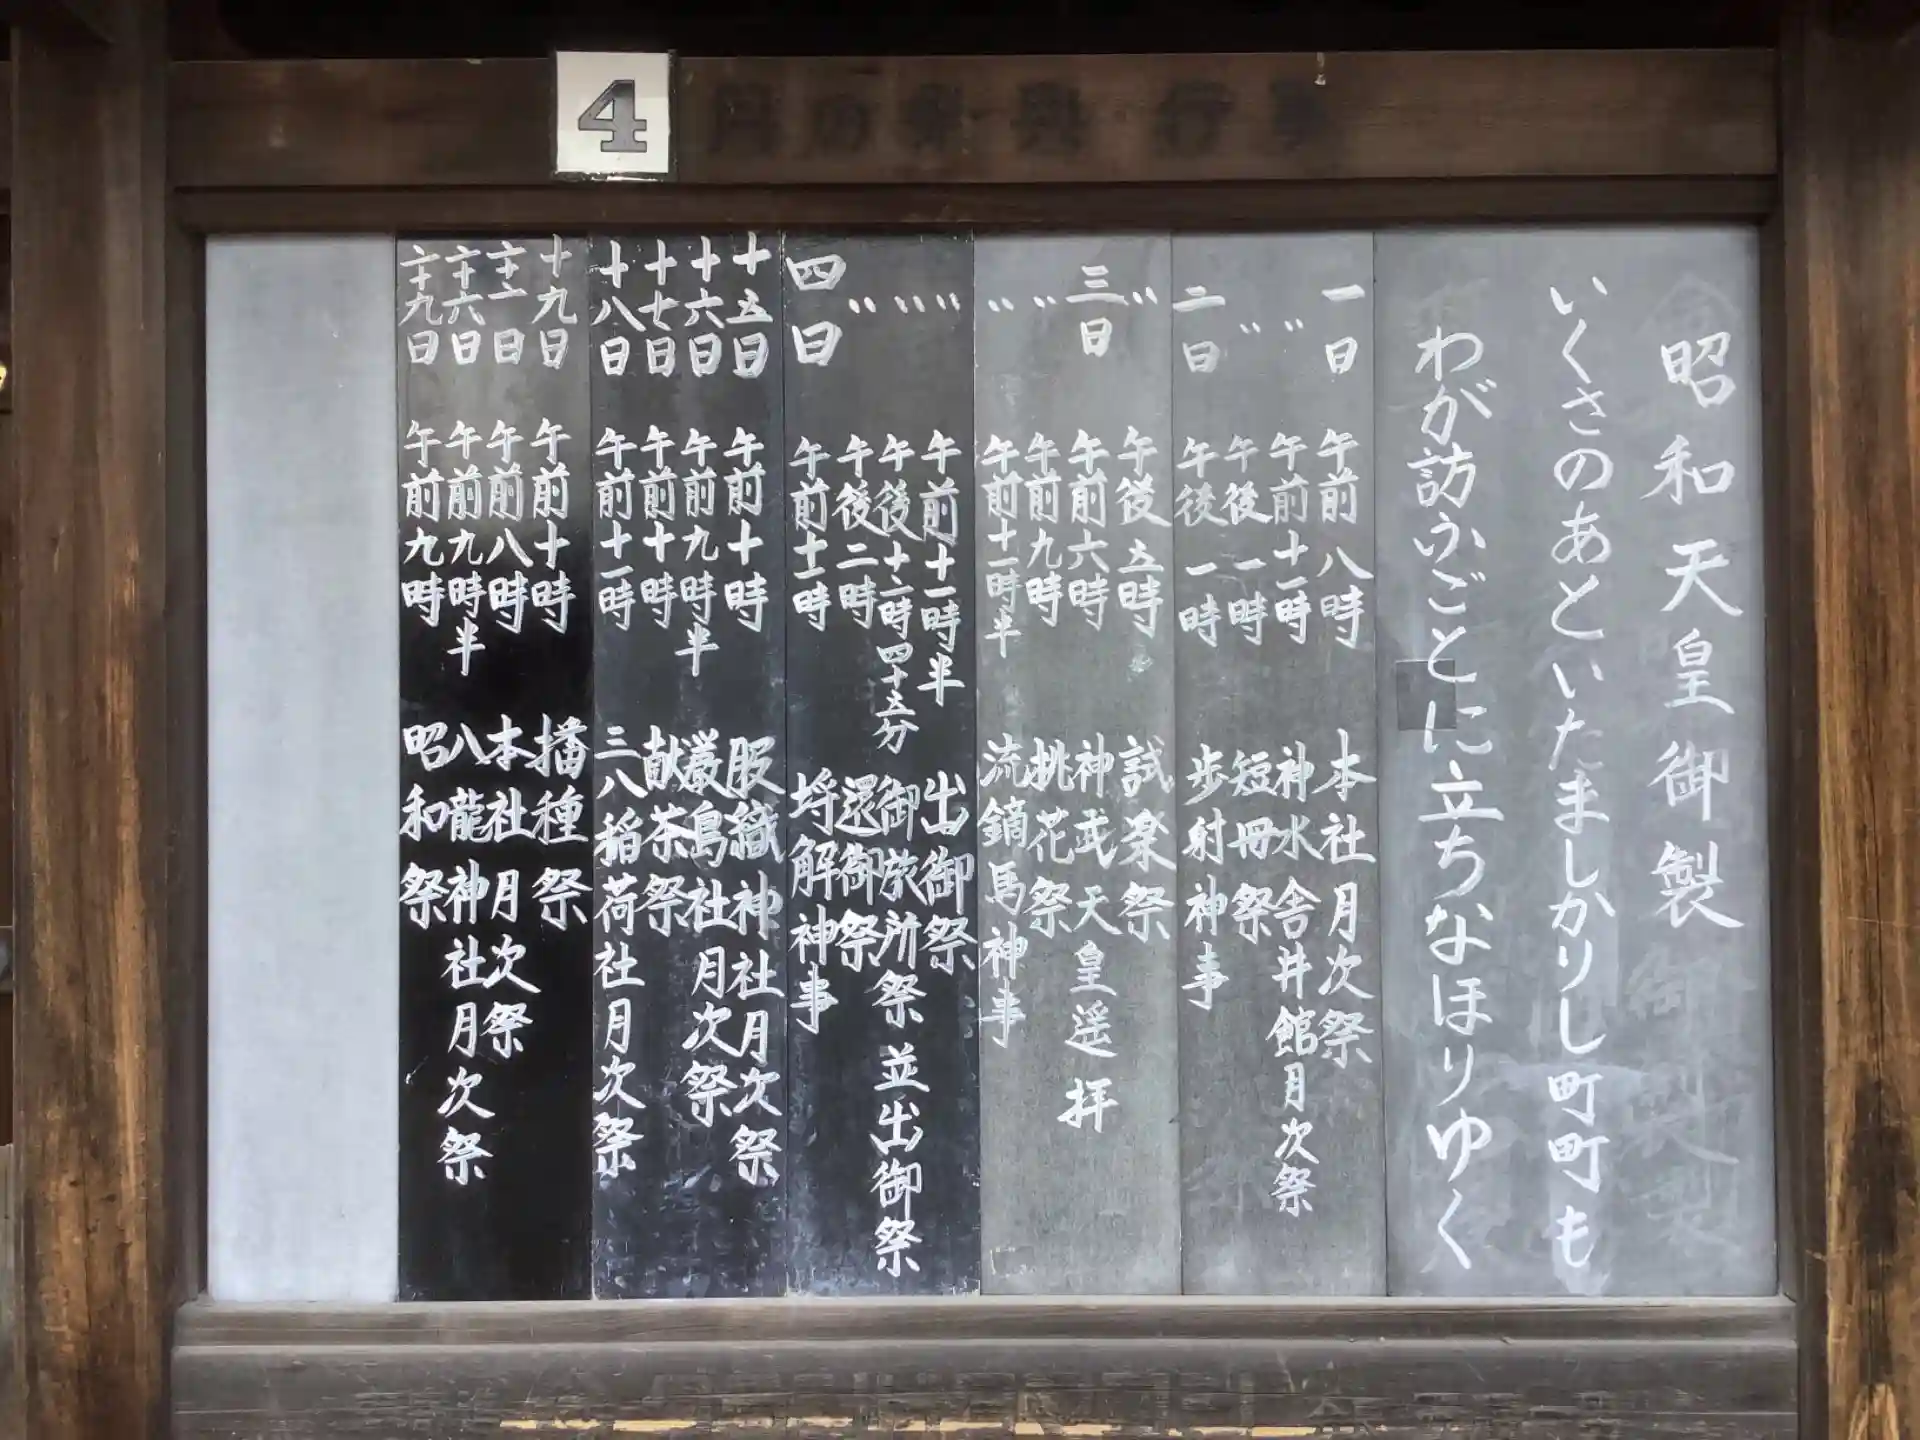 4 月の祭典・行事
昭和天皇御製
いくさのあといたましかりし町町も
わが訪ふごとに立ちなほりゆく
一日 午前八時 本社月次祭
〃 午前十一時 神水舎井館月次祭
〃 午後一時 短冊祭
二日 午後一時 歩射神事
〃 午後五時 試楽祭
三日 午前六時 神武天皇遥拝
〃 午前九時 桃花祭
〃 午前十一時半 流鏑馬神事
〃 午前十一時半 出御祭
〃 午後十二時四十五分 御旅所祭並出御祭
〃 午後二時 還御祭
四日 午前十一時 埒解神事
十五日 午前十時 服織神社月次祭
十六日 午前九時半 厳島社月次祭
十七日 午前十時 献茶祭
十八日 午前十一時 三八稲荷社月次祭
十九日 午前十時 播種祭
二十一日 午前八時 本社月次祭
二十六日 午前九時半 八龍神社月次祭
二十九日 午前九時 昭和祭